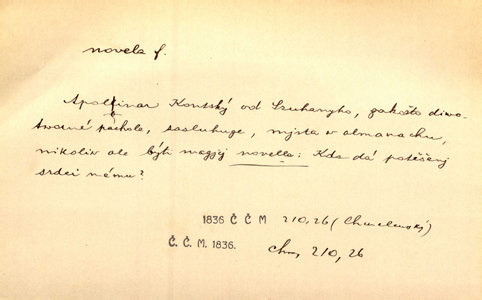 novela f.
Apollinar Kontský od Szuhanyho, gakožto diwo-
tworné pachole, zasluhuge, mjsta w almanachu,
nikoliw ale býti magjcj novella: Kdo dá potěšenj
srdci mému?
1836 Č Č M 210,26 (Chmelenský)
Č. Č. M. 1836. Chm, 210, 26